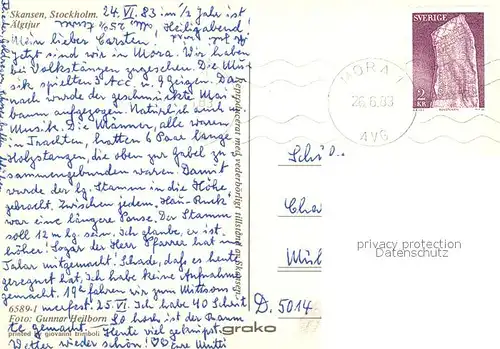 Skansen, Stockholm.
Älgtjur
24. VI. 83 in ½ Jahr ist
Heiligabend!
Mein lieber Carsten,
jetzt sind wir in Mora. Wir haben
bei Volkstänzen zugesehen. Die Mu-
sik spielten 3 Acc u. 9 Geigen. Da-
nach wurde der geschmückte Mai-
baum aufgezogen. Natürlich auch
Musik. Die Männer, alle waren
in Trachten, hatten 6 Paar lange
Holzstangen, die oben zur Gabel zu-
sammengebunden waren. Damit
wurde der lg. Stamm in die Höhe
gebracht. Zwischen jedem "Hau-Ruck"
war eine längere Pause. Der Stamm
soll 12 m lg. sein. Ich glaube, er ist
höher. Sogar der Herr Pfarrer hat im
Talar mitgemacht. Schade, daß es heute
geregnet hat, ich habe keine Aufnahme
gemacht. 19h fahren wir zum Mittsom
merfest. 25. VI. Ich habe 40 Schritt
6589-1
Foto: Gunnar Heilborn
printed by giovanni trimboli
so hoch ist der Baum
gemacht. Heute viel geknipst.
Wetter wieder schön! Eure Mutti
Reproducerat med vederbörligt tillstånd av Skansen
SVERIGE
2 KR
MORA 1
26.6.83
AVG
Schü
Cha
Mü
D. 5014
privacy protection
Datenschutz
grako